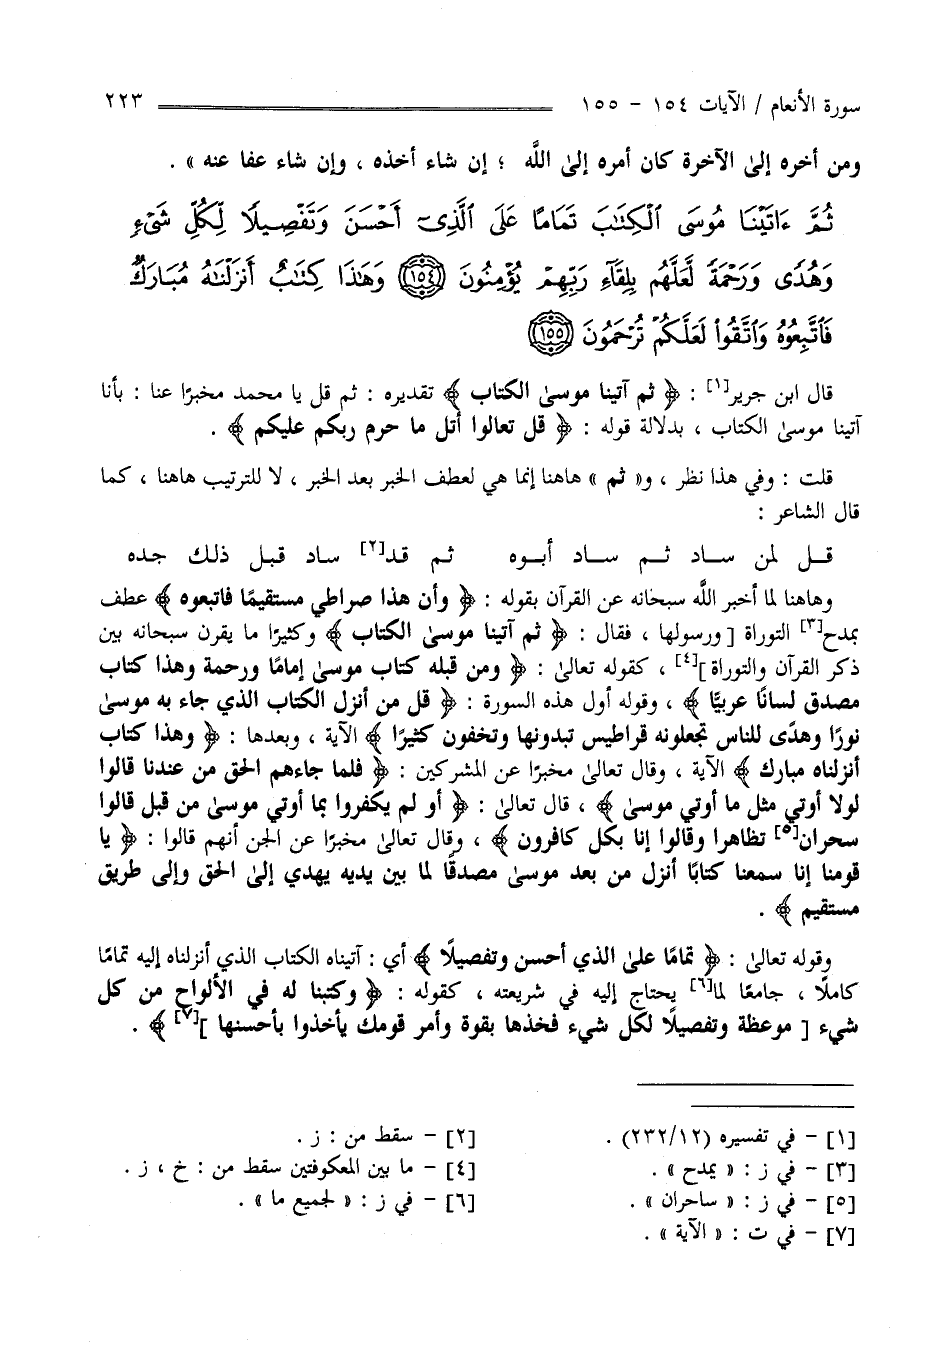 سورة الأنعام / الآيات ١٥٤ - ١٥٥ ٢٢٣
ومن أخره إلى الآخرة كان أمره إلى اللَّه ؛ إن شاء أخذه ، وإن شاء عفا عنه » .
ثُمَّ ءَاتَيْنَا مُوسَى ٱلْكِتَٰبَ تَمَامًا عَلَى ٱلَّذِىٓ أَحْسَنَ وَتَفْصِيلًا لِّكُلِّ شَىْءٍ
وَهُدًى وَرَحْمَةً لَّعَلَّهُم بِلِقَآءِ رَبِّهِمْ يُؤْمِنُونَ ﴿١٥٤﴾ وَهَٰذَا كِتَٰبٌ أَنزَلْنَٰهُ مُبَارَكٌ
فَٱتَّبِعُوهُ وَٱتَّقُوا۟ لَعَلَّكُمْ تُرْحَمُونَ ﴿١٥٥﴾
قال ابن جرير[١] : ﴿ ثم آتينا موسىٰ الكتاب ﴾ تقديره : ثم قل يا محمد مخبرًا عنا : بأنا
آتينا موسىٰ الكتاب ، بدلالة قوله : ﴿ قل تعالوا أتل ما حرم ربكم عليكم ﴾ .
قلت : وفي هذا نظر ، و« ثم » هاهنا إنما هي لعطف الخبر بعد الخبر ، لا للترتيب هاهنا ، كما
قال الشاعر :
قــل لمن ســاد ثــم ســاد أبــوه ثم قد[٢] ساد قبل ذلك جده
وهاهنا لما أخبر اللَّه سبحانه عن القرآن بقوله : ﴿ وأن هذا صراطي مستقيمًا فاتبعوه ﴾ عطف
بمدح[٣] التوراة [ ورسولها ، فقال : ﴿ ثم آتينا موسىٰ الكتاب ﴾ وكثيرًا ما يقرن سبحانه بين
ذكر القرآن والتوراة ][٤] ، كقوله تعالىٰ : ﴿ ومن قبله كتاب موسىٰ إمامًا ورحمة وهذا كتاب
مصدق لسانًا عربيًّا ﴾ ، وقوله أول هذه السورة : ﴿ قل من أنزل الكتاب الذي جاء به موسىٰ
نورًا وهدًى للناس تجعلونه قراطيس تبدونها وتخفون كثيرًا ﴾ الآية ، وبعدها : ﴿ وهذا كتاب
أنزلناه مبارك ﴾ الآية ، وقال تعالىٰ مخبرًا عن المشركين : ﴿ فلما جاءهم الحق من عندنا قالوا
لولا أوتي مثل ما أوتي موسىٰ ﴾ ، قال تعالىٰ : ﴿ أو لم يكفروا بما أوتي موسىٰ من قبل قالوا
سحران[٥] تظاهرا وقالوا إنا بكل كافرون ﴾ ، وقال تعالىٰ مخبرًا عن الجن أنهم قالوا : ﴿ يا
قومنا إنا سمعنا كتابًا أنزل من بعد موسىٰ مصدقًا لما بين يديه يهدي إلىٰ الحق وإلى طريق
مستقيم ﴾ .
وقوله تعالىٰ : ﴿ تمامًا علىٰ الذي أحسن وتفصيلًا ﴾ أي : آتيناه الكتاب الذي أنزلناه إليه تمامًا
كاملًا ، جامعًا لما[٦] يحتاج إليه في شريعته ، كقوله : ﴿ وكتبنا له في الألواح من كل
شيء [ موعظة وتفصيلًا لكل شيء فخذها بقوة وأمر قومك يأخذوا بأحسنها ][٧] ﴾ .
[١] - في تفسيره (٢٣٢/١٢) . [٢] - سقط من : ز .
[٣] - في ز : « يمدح » . [٤] - ما بين المعكوفتين سقط من : خ ، ز .
[٥] - في ز : « ساحران » . [٦] - في ز : « لجميع ما » .
[٧] - في ت : « الآية » .